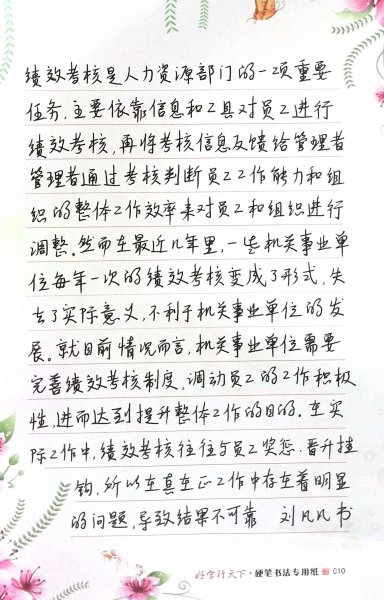 绩效考核是人力资源部门的一项重要
任务，主要依靠信息和工具对员工进行
绩效考核，再将考核信息反馈给管理者
管理者通过考核判断员工工作能力和组
织的整体工作效率来对员工和组织进行
调整。然而在最近几年里，一些机关事业单
位每年一次的绩效考核变成了形式，失
去了实际意义，不利于机关事业单位的发
展。就目前情况而言，机关事业单位需要
完善绩效考核制度，调动员工的工作积极
性，进而达到提升整体工作的目的。在实
际工作中，绩效考核往往与员工奖惩、晋升挂
钩，所以在真在正工作中存在着明显
的问题，导致结果不可靠 刘凡凡书
好字行天下·硬笔书法专用纸 C10